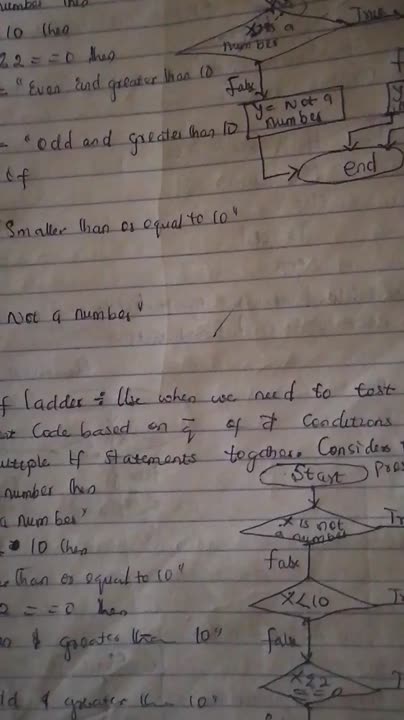 number then
10 then
22 == 0 then
= "Even and greater than 10
= "odd and greater than 10
if
Smaller than or equal to 10"
Not a number"
x is a
number
True
False
y = Not a
number
end
f ladder : Use when we need to test
Code based on of Conditions
multiple If statements together. Consider
number then
a number"
10 then
than or equal to 10"
2 == 0 then
n & greater than 10"
ld & greater than 10"
Start
x is not
a number
False
x<10
False
x%2
== 0